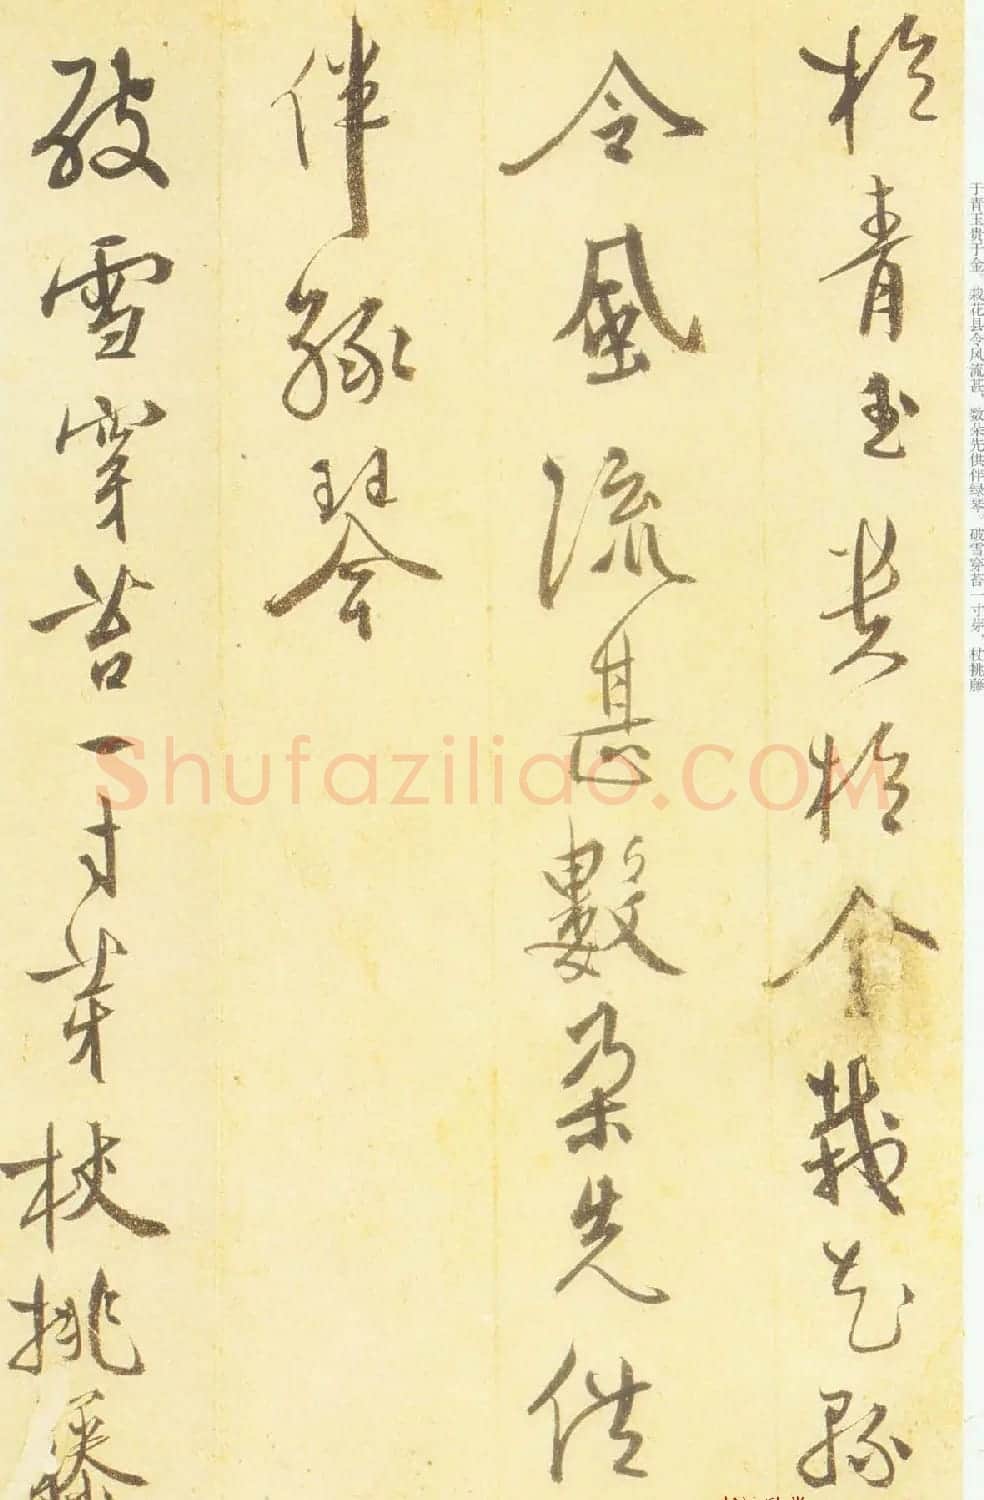 於青玉貴於金栽花縣
令風流甚數朵先供
伴緑琴
破雪穿苔一寸芽杖挑藤
于青玉贵于金。栽花县令风流甚，数朵先供伴绿琴。破雪穿苔一寸芽，杖挑藤
Shufaziliao.COM